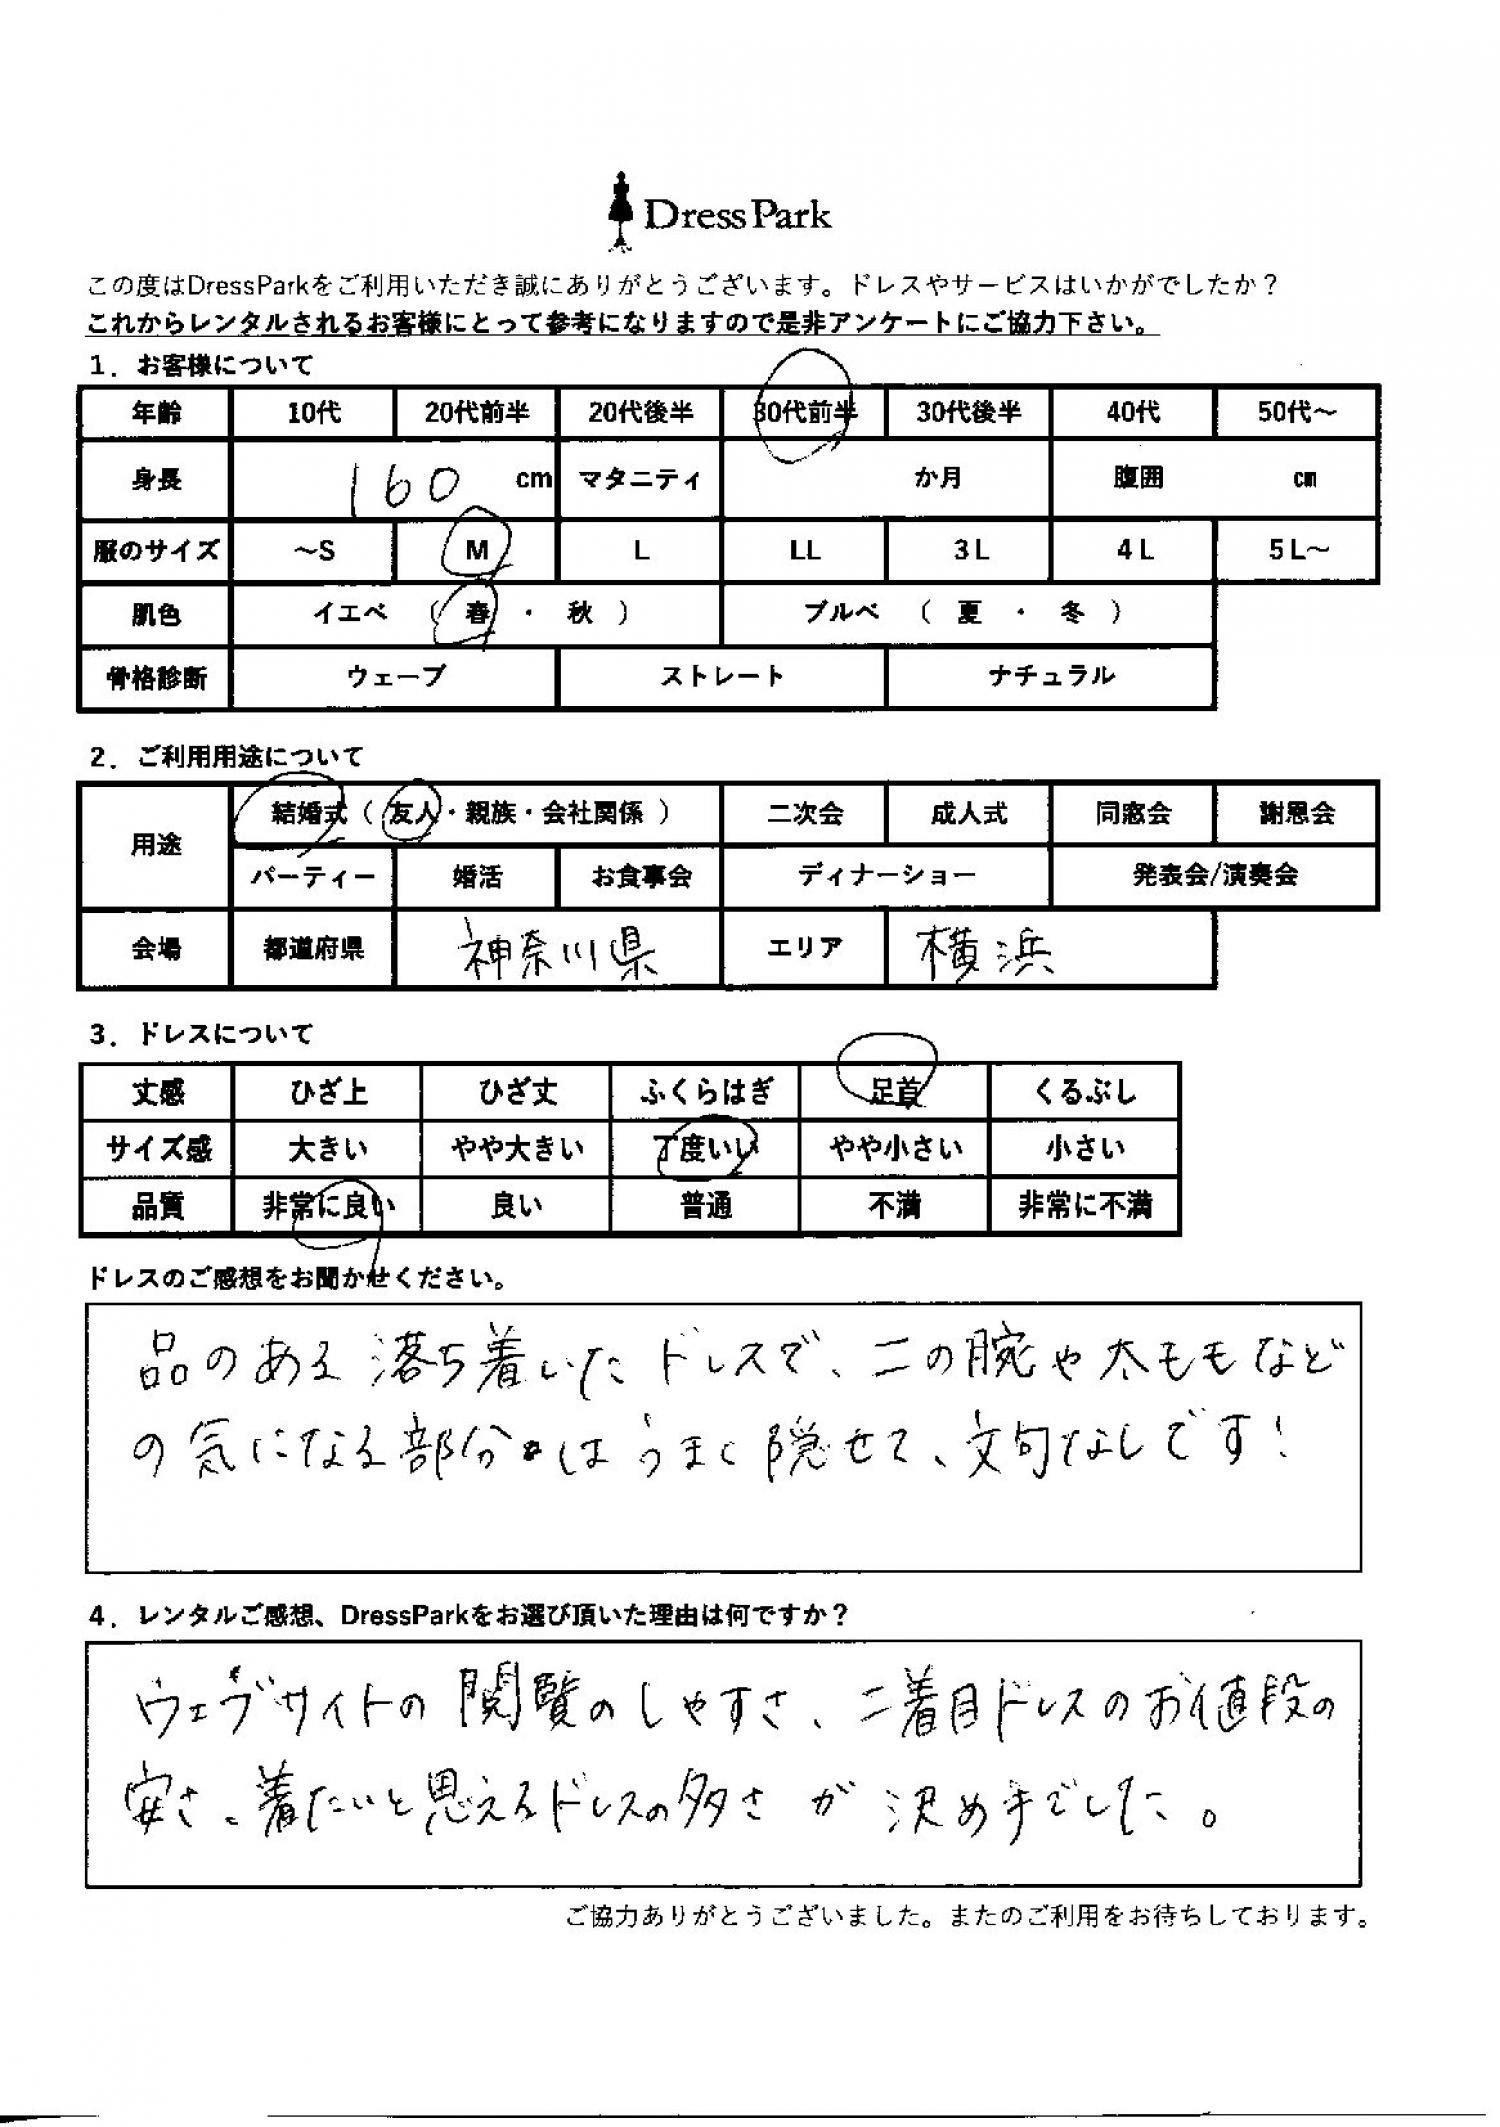 DressPark
この度はDressParkをご利用いただき誠にありがとうございます。ドレスやサービスはいかがでしたか？
これからレンタルされるお客様にとって参考になりますので是非アンケートにご協力下さい。
1．お客様について
年齢 10代 20代前半 20代後半 30代前半 30代後半 40代 50代～
身長 160 cm マタニティ か月 腹囲 cm
服のサイズ ～S M L LL 3L 4L 5L～
肌色 イエベ （ 春 ・ 秋 ） ブルベ （ 夏 ・ 冬 ）
骨格診断 ウェーブ ストレート ナチュラル
2．ご利用用途について
用途 結婚式（ 友人・親族・会社関係 ） 二次会 成人式 同窓会 謝恩会
パーティー 婚活 お食事会 ディナーショー 発表会/演奏会
会場 都道府県 神奈川県 エリア 横浜
3．ドレスについて
丈感 ひざ上 ひざ丈 ふくらはぎ 足首 くるぶし
サイズ感 大きい やや大きい 丁度いい やや小さい 小さい
品質 非常に良い 良い 普通 不満 非常に不満
ドレスのご感想をお聞かせください。
品のある落ち着いたドレスで、二の腕や太ももなど
の気になる部分はうまく隠せて、文句なしです!
4．レンタルご感想、DressParkをお選び頂いた理由は何ですか？
ウェブサイトの閲覧のしやすさ、二着目ドレスのお値段の
安さ、着たいと思えるドレスの多さが決め手でした。
ご協力ありがとうございました。またのご利用をお待ちしております。